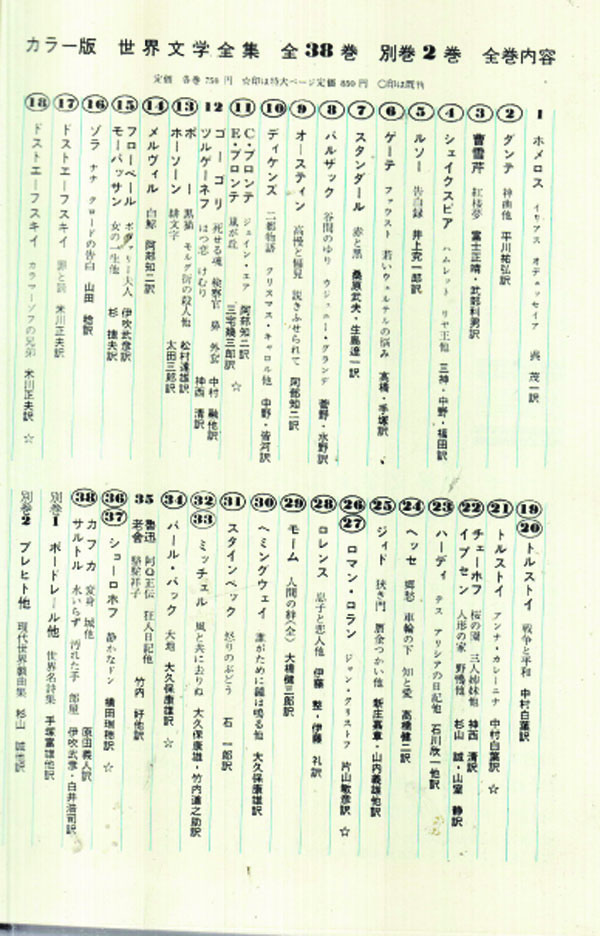 カラー版 世界文学全集 全38巻 別巻2巻 全巻内容
定価 各巻750円 ☆印は特大ページ定価850円 ○印は既刊
1 ホメロス イリアス オデュッセイア 呉 茂一訳
② ダンテ 神曲他 平川祐弘訳
③ 曹雪芹 紅楼夢 富士正晴・武部利男訳
④ シェイクスピア ハムレット リヤ王他 三神・中野・福田訳
⑤ ルソー 告白録 井上究一郎訳
⑥ ゲーテ ファウスト 若いウェルテルの悩み 高橋・手塚訳
⑦ スタンダール 赤と黒 桑原武夫・生島遼一訳
⑧ バルザック 谷間のゆり ウジェニー・グランデ 菅野・水野訳
⑨ オースティン 高慢と偏見 説きふせられて 阿部知二訳
⑩ ディケンズ 二都物語 クリスマス・キャロル他 中野・皆河訳
⑪ C・ブロンテ ジェイン・エア 阿部知二訳
E・ブロンテ 嵐が丘 三宅幾三郎訳 ☆
12 ゴーゴリ 死せる魂 検察官 鼻 外套 中村 融他訳
ツルゲーネフ はつ恋 けむり 神西 清訳
⑬ ポー 黒猫 モルグ街の殺人他 松村達雄訳
ホーソーン 緋文字 太田三郎訳
⑭ メルヴィル 白鯨 阿部知二訳
⑮ フローベール ボヴァリー夫人 伊吹武彦訳
モーパッサン 女の一生他 杉 捷夫訳
⑯ ゾラ ナナ クロードの告白 山田 稔訳
⑰ ドストエーフスキイ 罪と罰 米川正夫訳
⑱ ドストエーフスキイ カラマーゾフの兄弟 米川正夫訳 ☆
⑲⑳ トルストイ 戦争と平和 中村白葉訳
㉑ トルストイ アンナ・カレーニナ 中村白葉訳 ☆
㉒ チェーホフ 桜の園 三人姉妹他 神西 清訳
イプセン 人形の家 野鴨他 杉山 誠・山室 静訳
㉓ ハーディ テス アリシアの日記他 石川欣一他訳
㉔ ヘッセ 郷愁 車輪の下 知と愛 高橋健二訳
㉕ ジイド 狭き門 贋金つかい他 新庄嘉章・山内義雄他訳
㉖㉗ ロマン・ロラン ジャン・クリストフ 片山敏彦訳 ☆
㉘ ロレンス 息子と恋人他 伊藤 整・伊藤 礼訳
㉙ モーム 人間の絆〈全〉 大橋健三郎訳
㉚ ヘミングウェイ 誰がために鐘は鳴る他 大久保康雄訳
㉛ スタインベック 怒りのぶどう 石 一郎訳
㉜㉝ ミッチェル 風と共に去りぬ 大久保康雄・竹内道之助訳
㉞ パール・バック 大地 大久保康雄訳 ☆
35 魯迅 阿Q正伝 狂人日記他
老舎 駱駝祥子 竹内 好他訳
㊱㊲ ショーロホフ 静かなドン 横田瑞穂訳 ☆
㊳ カフカ 変身 城他 原田義人訳
サルトル 水いらず 汚れた手 部屋 伊吹武彦・白井浩司訳
別巻1 ボードレール他 世界名詩集 手塚富雄他訳
別巻2 ブレヒト他 現代世界戯曲集 杉山 誠他訳